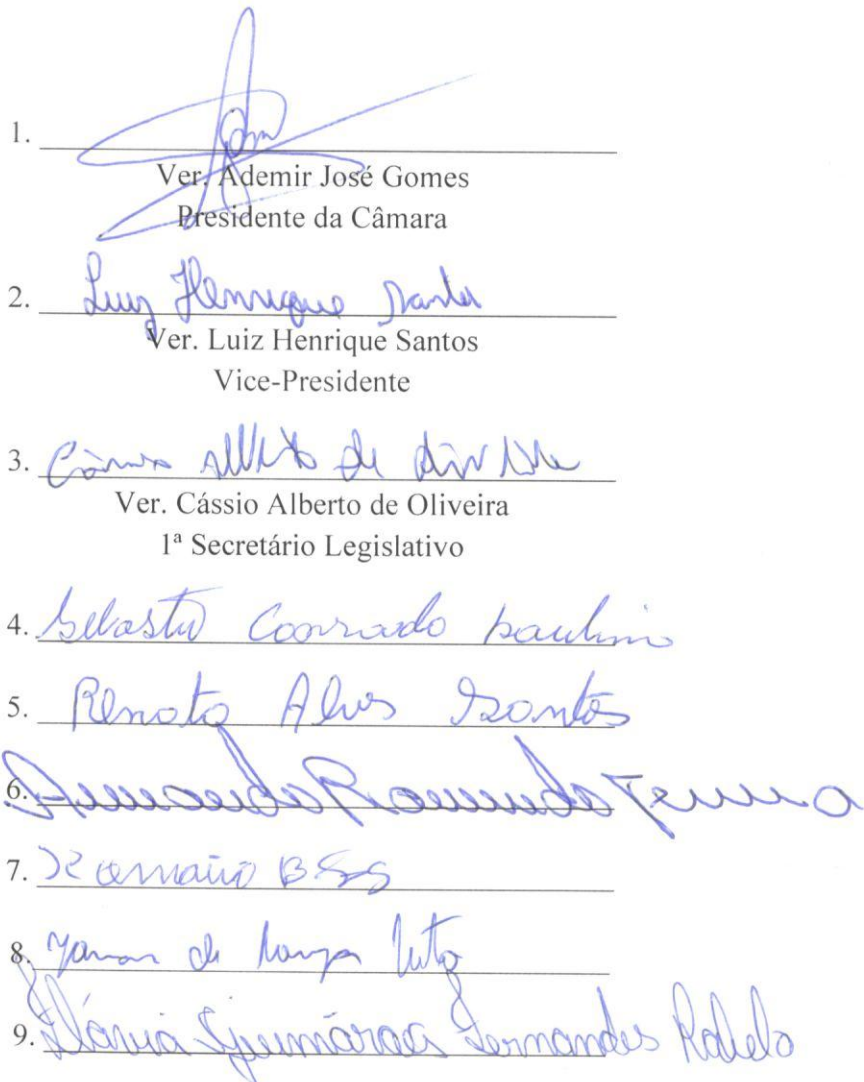 1.
Ver. Ademir José Gomes
Presidente da Câmara
2. Luiz Henrique Santos
Ver. Luiz Henrique Santos
Vice-Presidente
3. Cássio Alberto de Oliveira
Ver. Cássio Alberto de Oliveira
1ª Secretário Legislativo
4. Conrado Paulino
5. Renato Alves Santos
6. Raimundo
7.
8. de
9. Flávia Guimarães Fernandes Rabelo